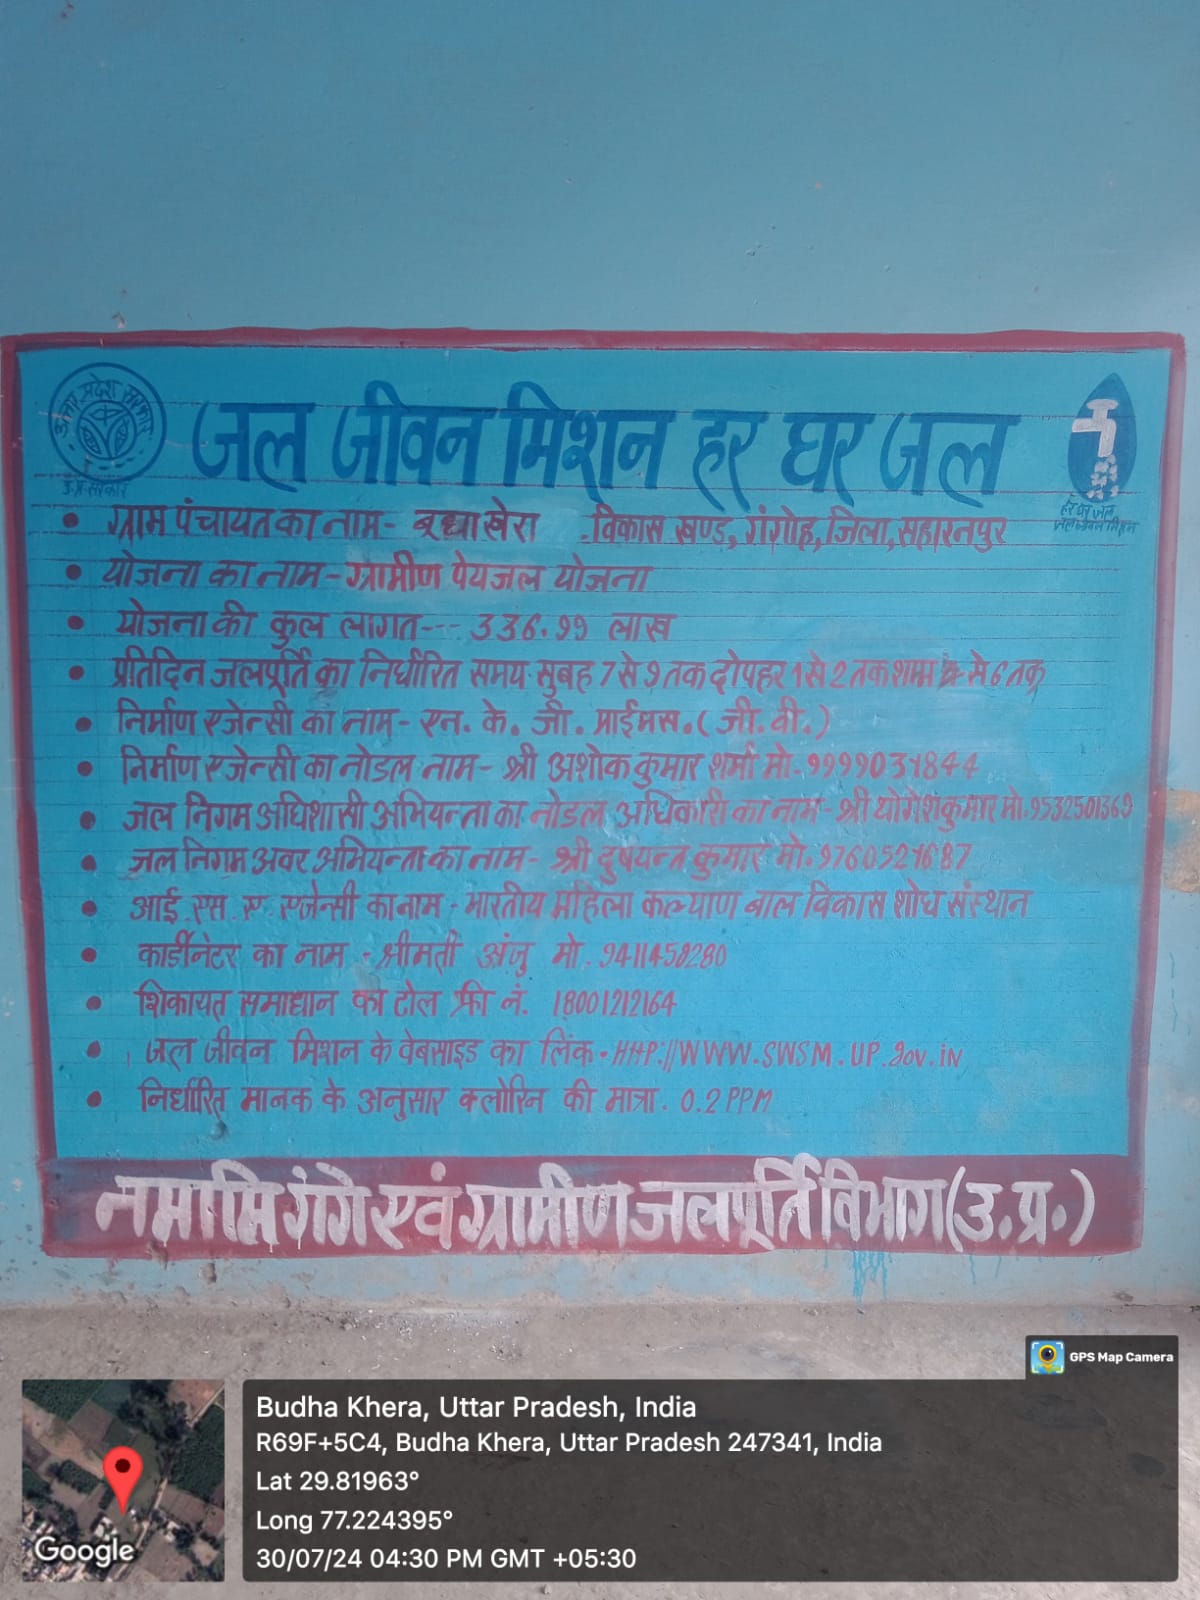 उत्तर प्रदेश सरकार
उ.प्र.सरकार
जल जीवन मिशन हर घर जल
हर घर जल
जल जीवन मिशन
• ग्राम पंचायत का नाम- बूढ़ाखेरा विकास खण्ड, गंगोह, जिला, सहारनपुर
• योजना का नाम-ग्रामीण पेयजल योजना
• योजना की कुल लागत--- 336.99 लाख
• प्रतिदिन जलपूर्ति का निर्धारित समय-सुबह 7 से 9 तक दोपहर 1 से 2 तक शाम से 6 तक
• निर्माण एजेन्सी का नाम- एन. के. जी. प्राईमस.(जी.वी.)
• निर्माण एजेन्सी का नोडल नाम- श्री अशोक कुमार शर्मा मो-9999031844
• जल निगम अधिशासी अभियन्ता का नोडल अधिकारी का नाम- श्री योगेशकुमार मो.9532501369
• जल निगम अवर अभियन्ता का नाम- श्री दुषयन्त कुमार मो.9760521687
• आई.एस.ए.एजेन्सी का नाम-भारतीय महिला कल्याण बाल विकास शोध संस्थान
• कार्डीनेटर का नाम -श्रीमती अंजु मो.9411458280
• शिकायत समाधान का टोल फ्री नं. 18001212164
• जल जीवन मिशन के वेबसाइड का लिंक-HttP://WWW.SWSM.UP.gov.iN
• निर्धारित मानक के अनुसार क्लोरिन की मात्रा. 0.2 PPM
नमामि गंगे एवं ग्रामीण जलपूर्ति विभाग(उ.प्र.)
GPS Map Camera
Budha Khera, Uttar Pradesh, India
R69F+5C4, Budha Khera, Uttar Pradesh 247341, India
Lat 29.81963°
Long 77.224395°
30/07/24 04:30 PM GMT +05:30
Google